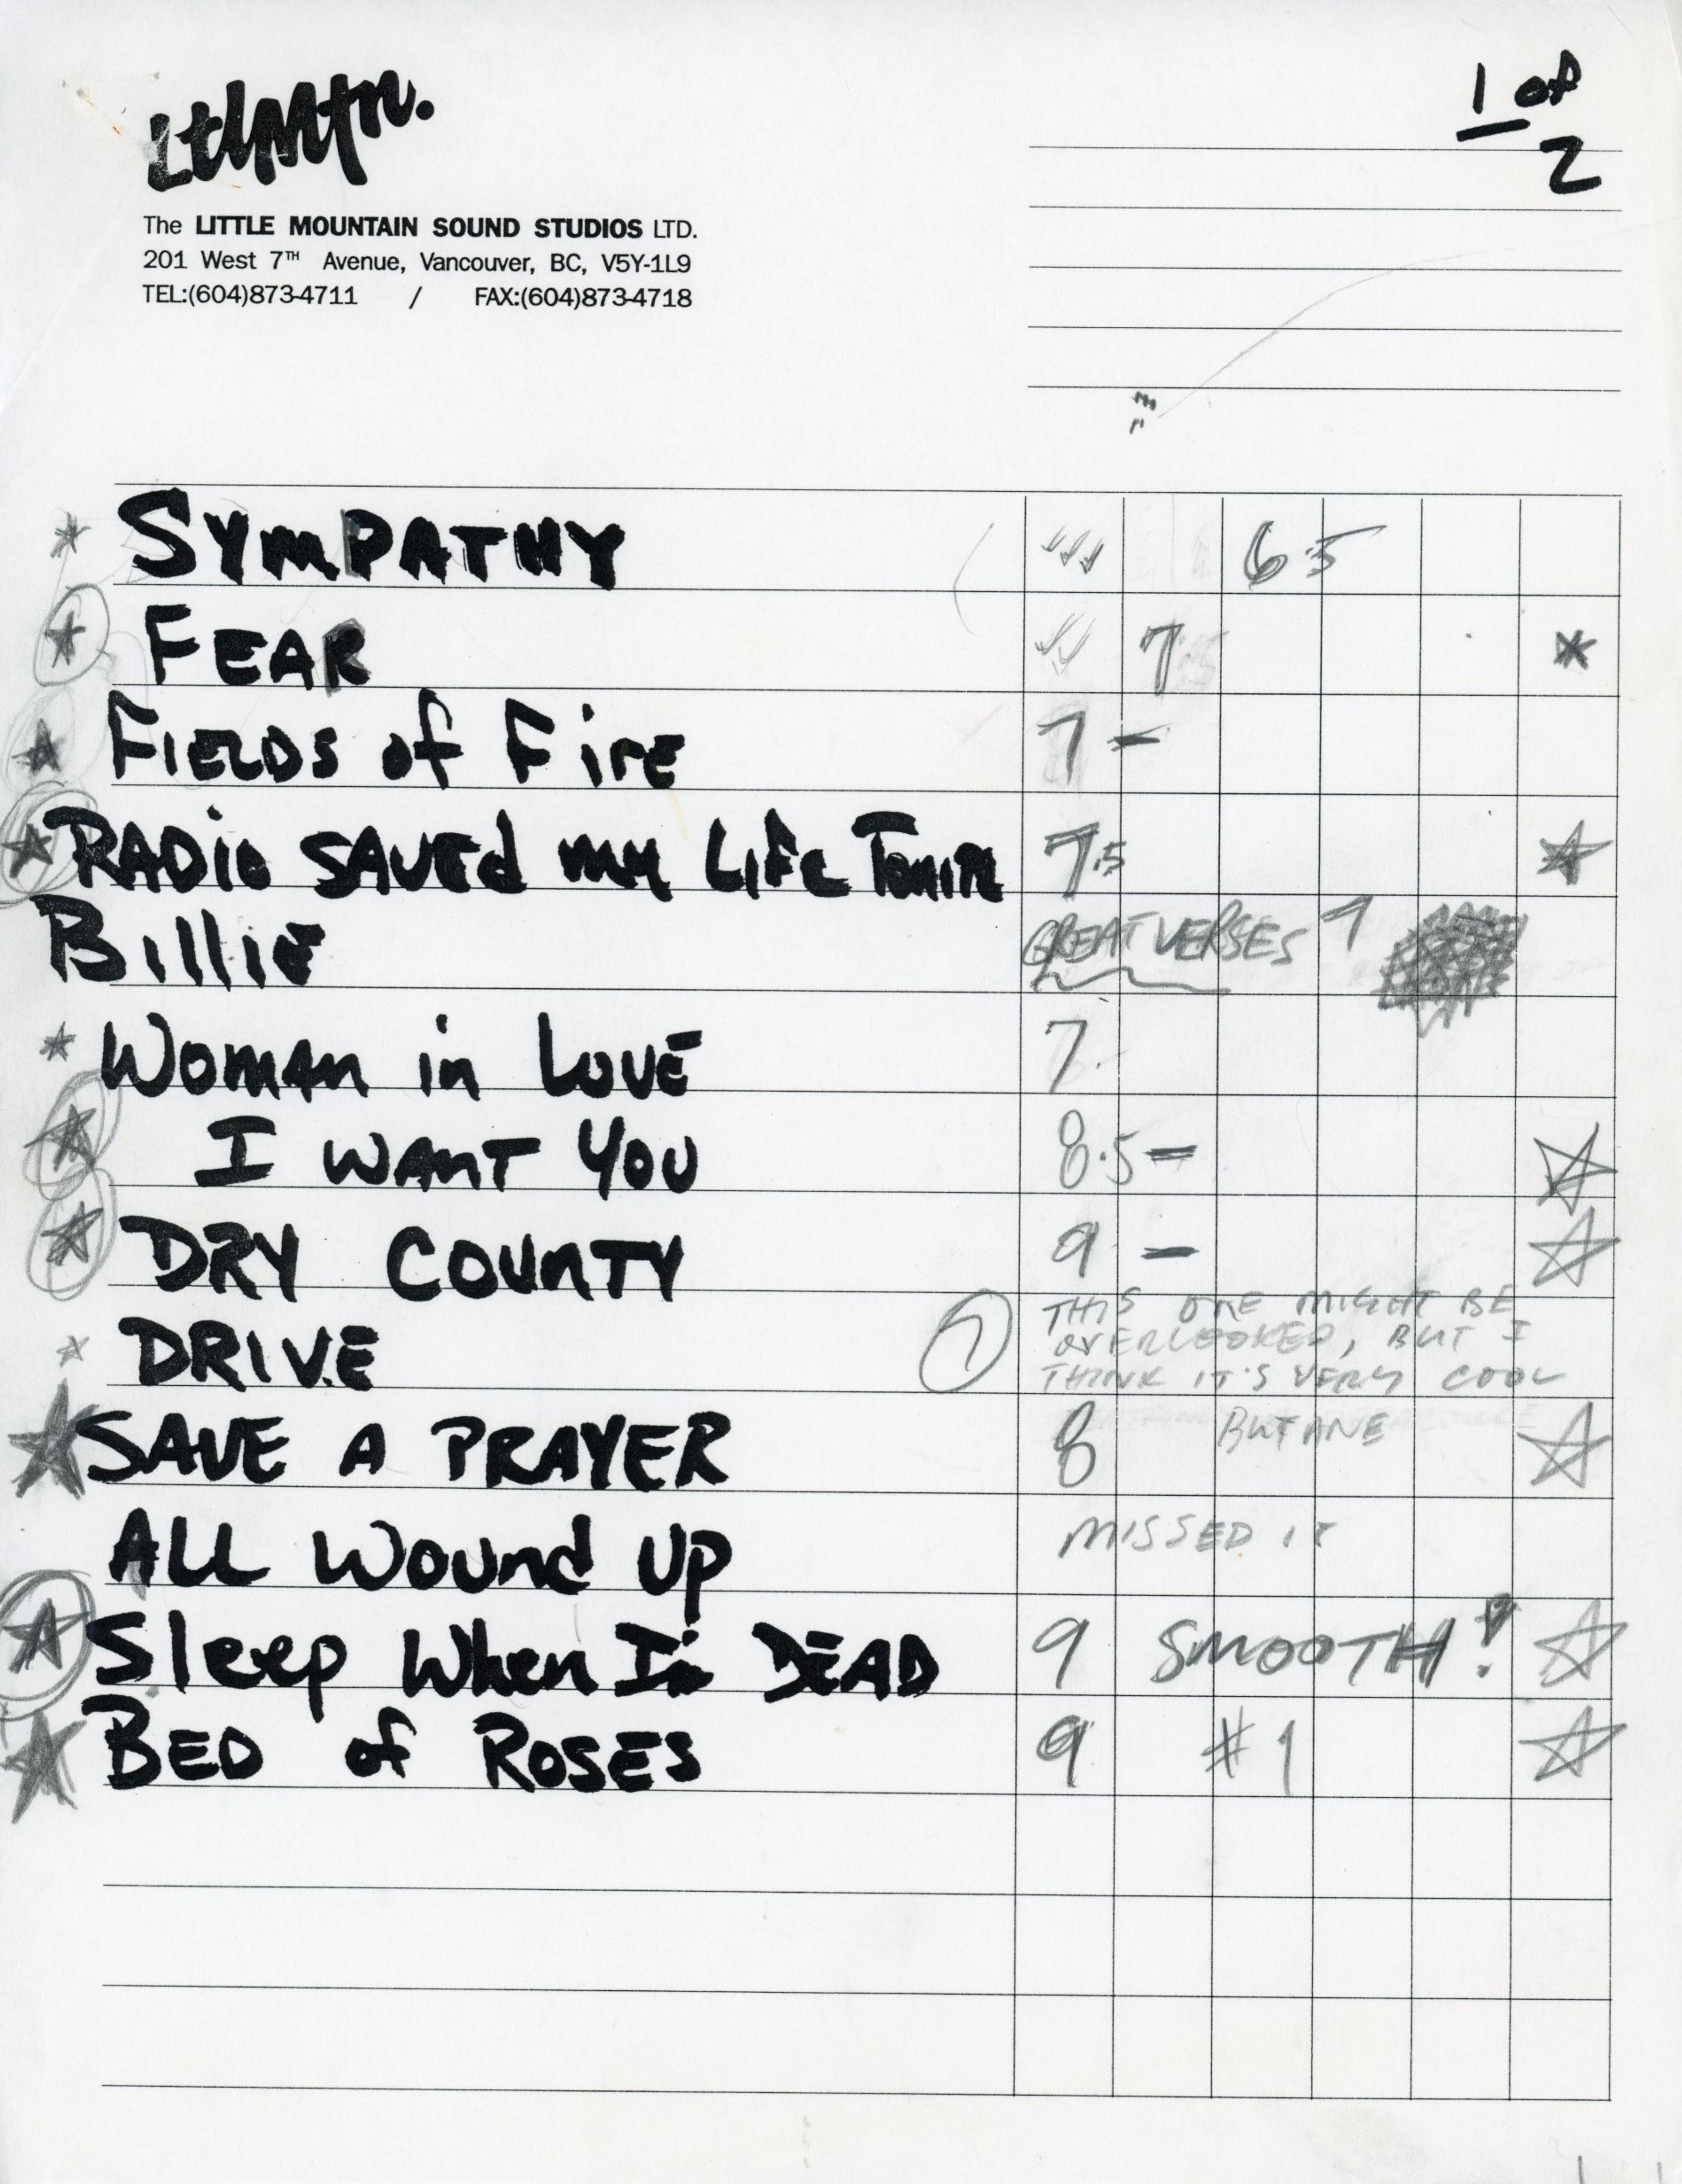 1 of
2
LtlMtn.
The LITTLE MOUNTAIN SOUND STUDIOS LTD.
201 West 7TH Avenue, Vancouver, BC, V5Y-1L9
TEL:(604)873-4711 / FAX:(604)873-4718
* SYMPATHY 6.5
* FEAR 7 *
★ FIELDS of FirE 7 -
★ RADio SAVEd my LiFe ToniTE 7.5 ★
BilliE GREAT VERSES
★ WomAn in LovE 7
★ I WAnT You 8.5 - ☆
★ DRY COUnTY 9 - ☆
* DRIVE 7 THIS ONE MIGHT BE
OVERLOOKED, BUT I
THINK IT'S VERY COOL
★ SAVE A PRAYER 8 BUTANE ☆
ALL Wound Up MISSED IT
★ Sleep When I'm DEAD 9 SMOOTH! ☆
★ BED of ROSES 9 #1 ☆